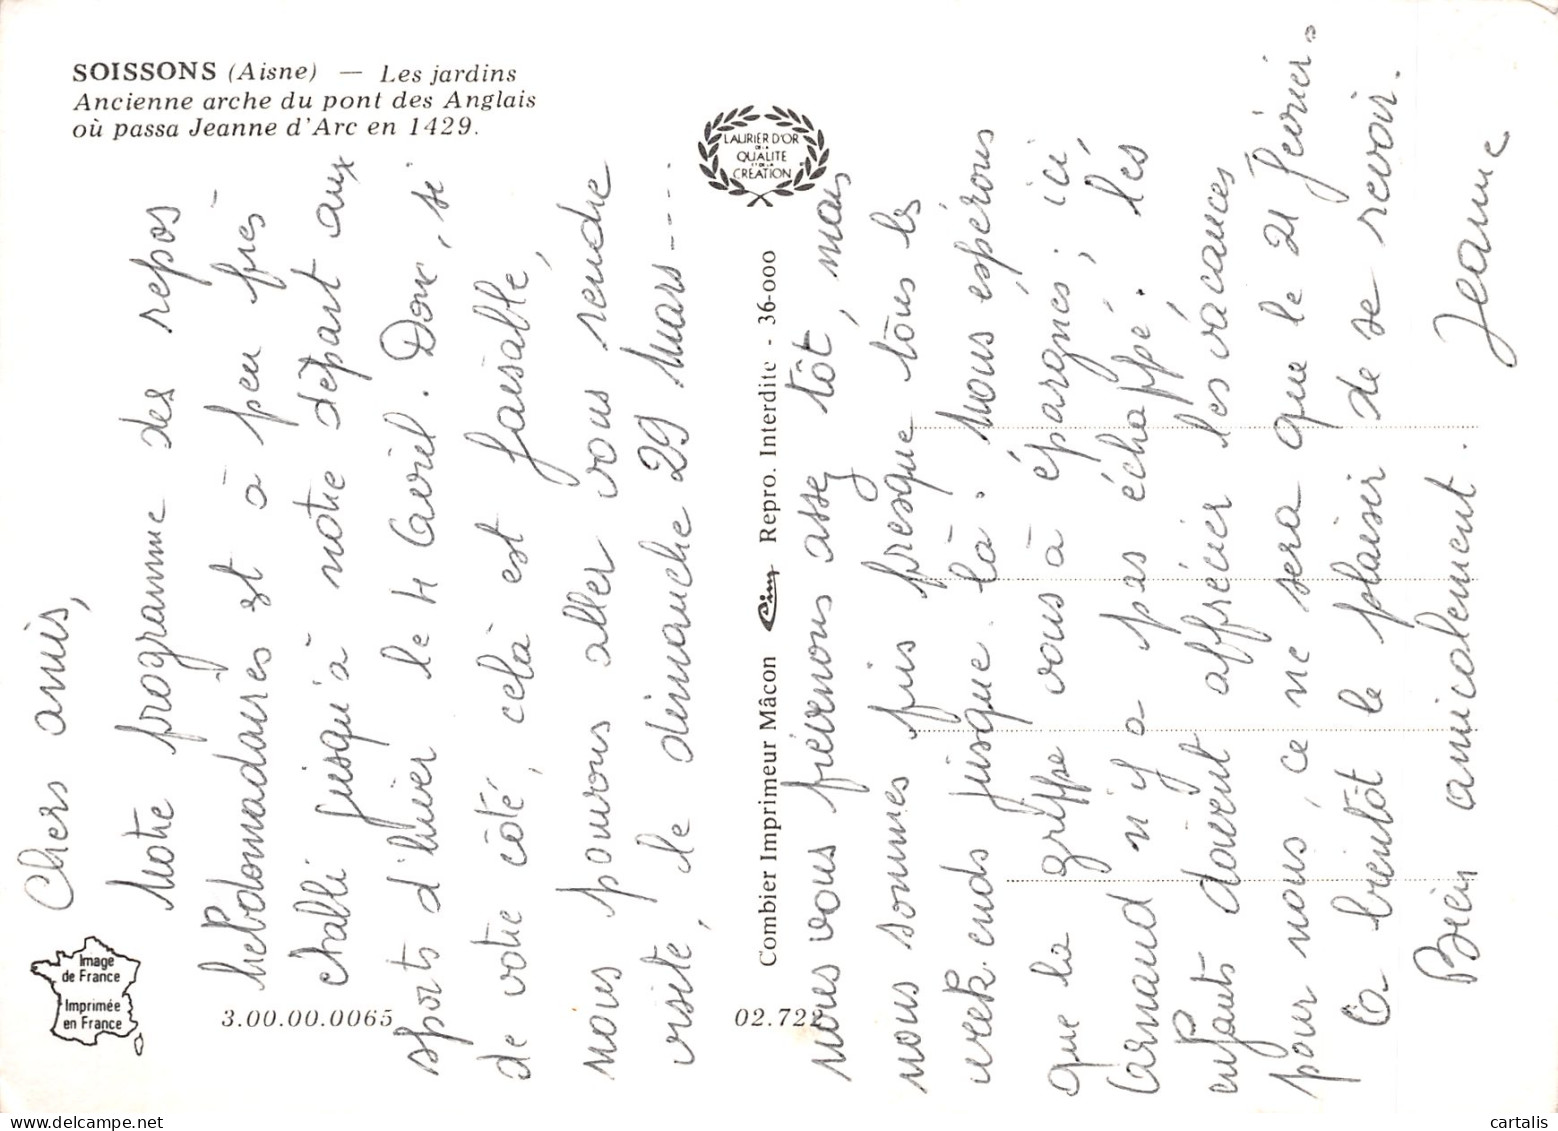 SOISSONS (Aisne) — Les jardins
Ancienne arche du pont des Anglais
où passa Jeanne d'Arc en 1429.
LAURIER D'OR
DE LA
QUALITE
ET DE LA
CRÉATION
Image
de France
Imprimée
en France
3.00.00.0065
02.722
Combier Imprimeur Mâcon Cim Repro. Interdite - 36-000
Chers amis,
Notre programme des repos
hebdomadaires est à peu près
établi jusqu'à notre départ aux
sports d'hiver le 4 avril. Donc, si
de votre côté, celà est faisable,
nous pouvons aller vous rendre
visite, le dimanche 29 Mars----
nous vous prévenons assez tôt, mais
nous sommes pris presque tous les
week.ends jusque là. Nous espérons
que la grippe vous à épargnés; ici,
Carmaud n'y a pas échappé. Les
enfants doivent apprécier les vacances
pour nous, ce ne sera que le 21 Février.
A bientôt le plaisir de se revoir.
Bien amicalement.
Jeanne
cartalis